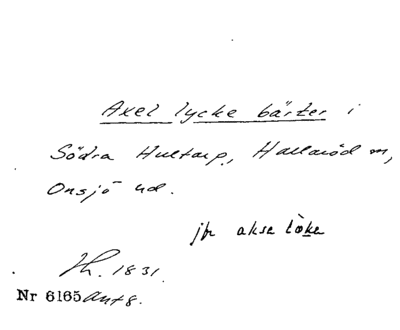 Axel lycke bärter i
Södra Hultarp, Hallaröd sn,
Onsjö hd.
jfr aksa löka
Th. 1831.
Nr 6165 Ant 8.